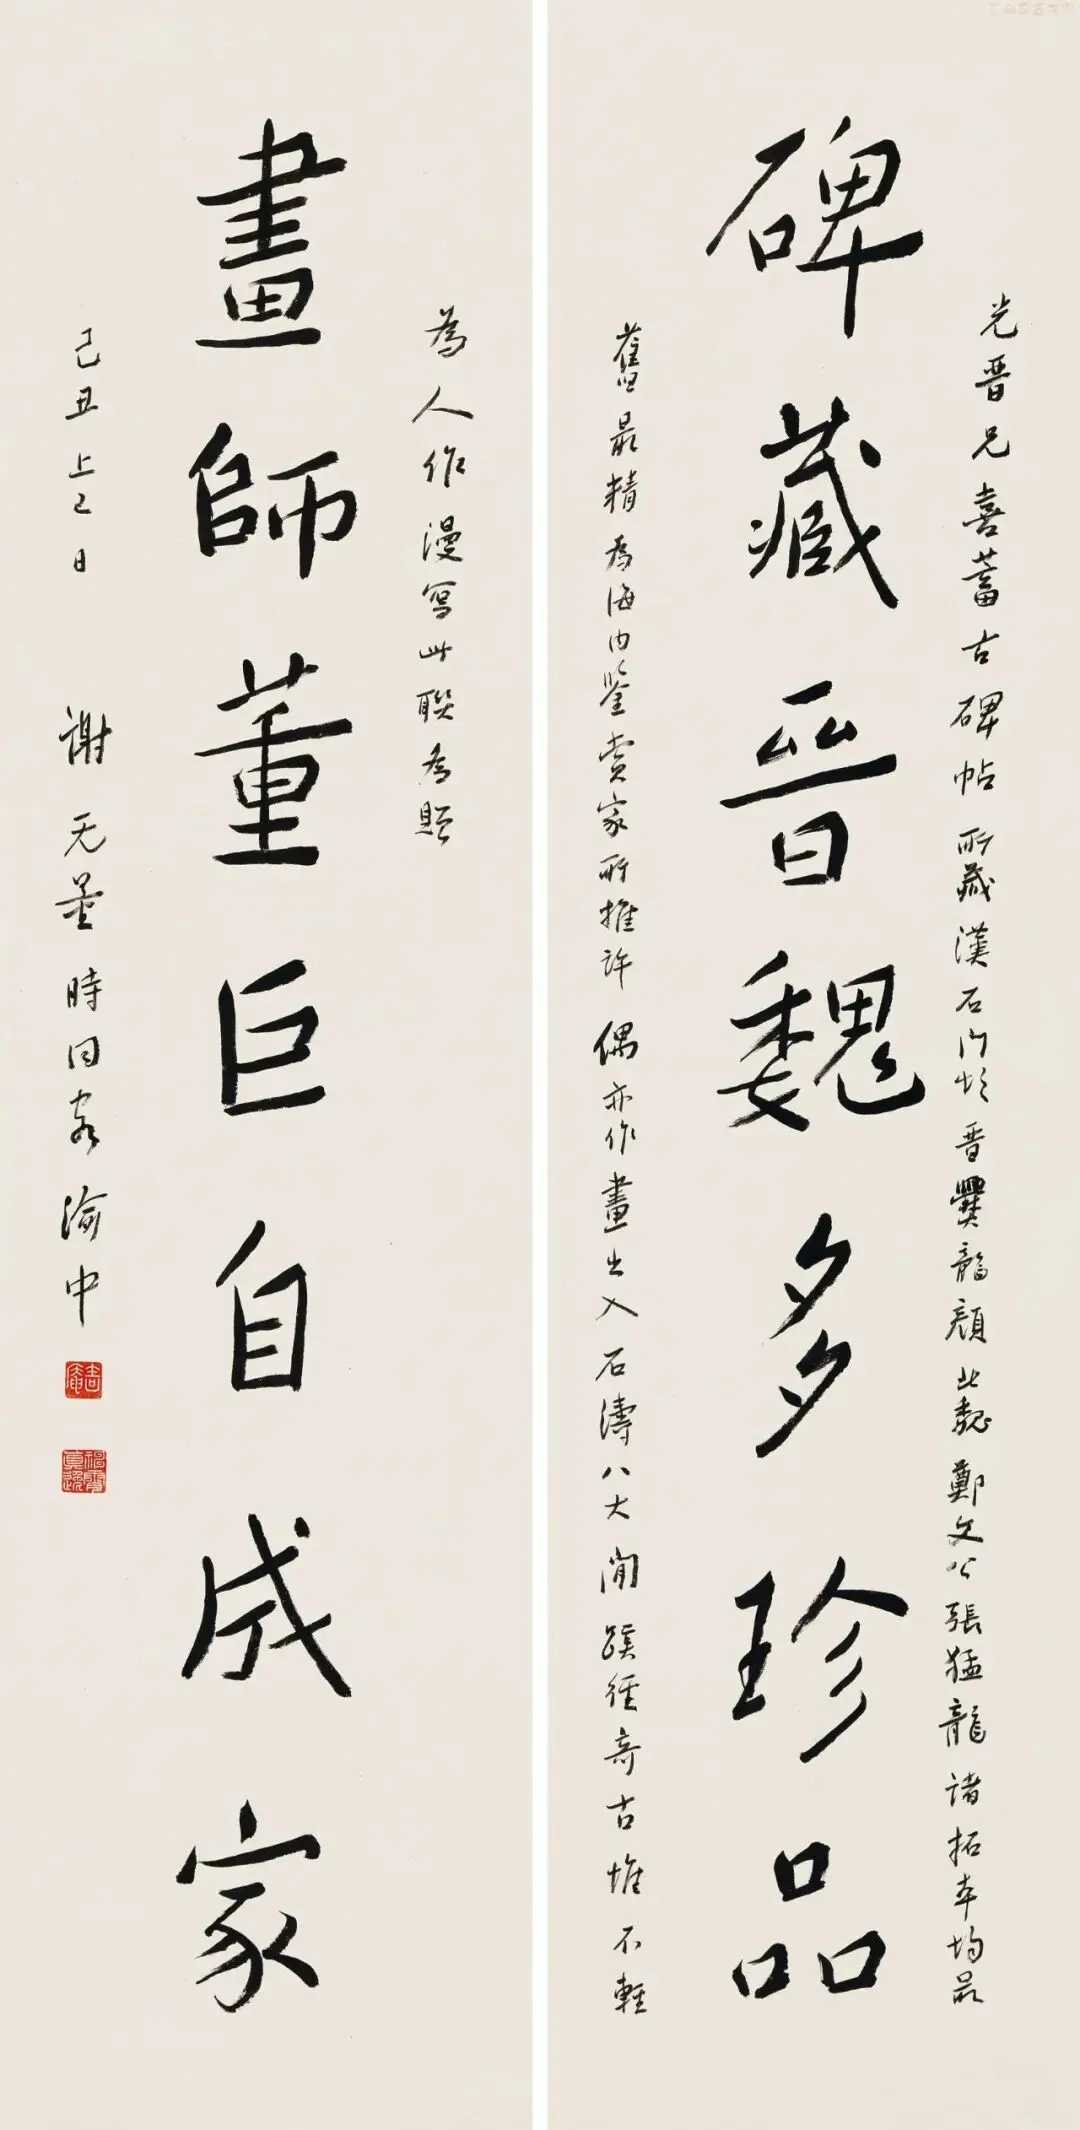 碑藏晉魏多珍品
光晋兄喜蓄古碑帖所藏漢石门頌晋爨龍顔北魏鄭文公張猛龍諸拓本均最
舊最精為海内鑒賞家所推許偶亦作畫出入石濤八大間蹊徑奇古惟不輕
畫師董巨自成家
為人作漫寫此聯為贈
己丑上巳日
謝无量時同客渝中